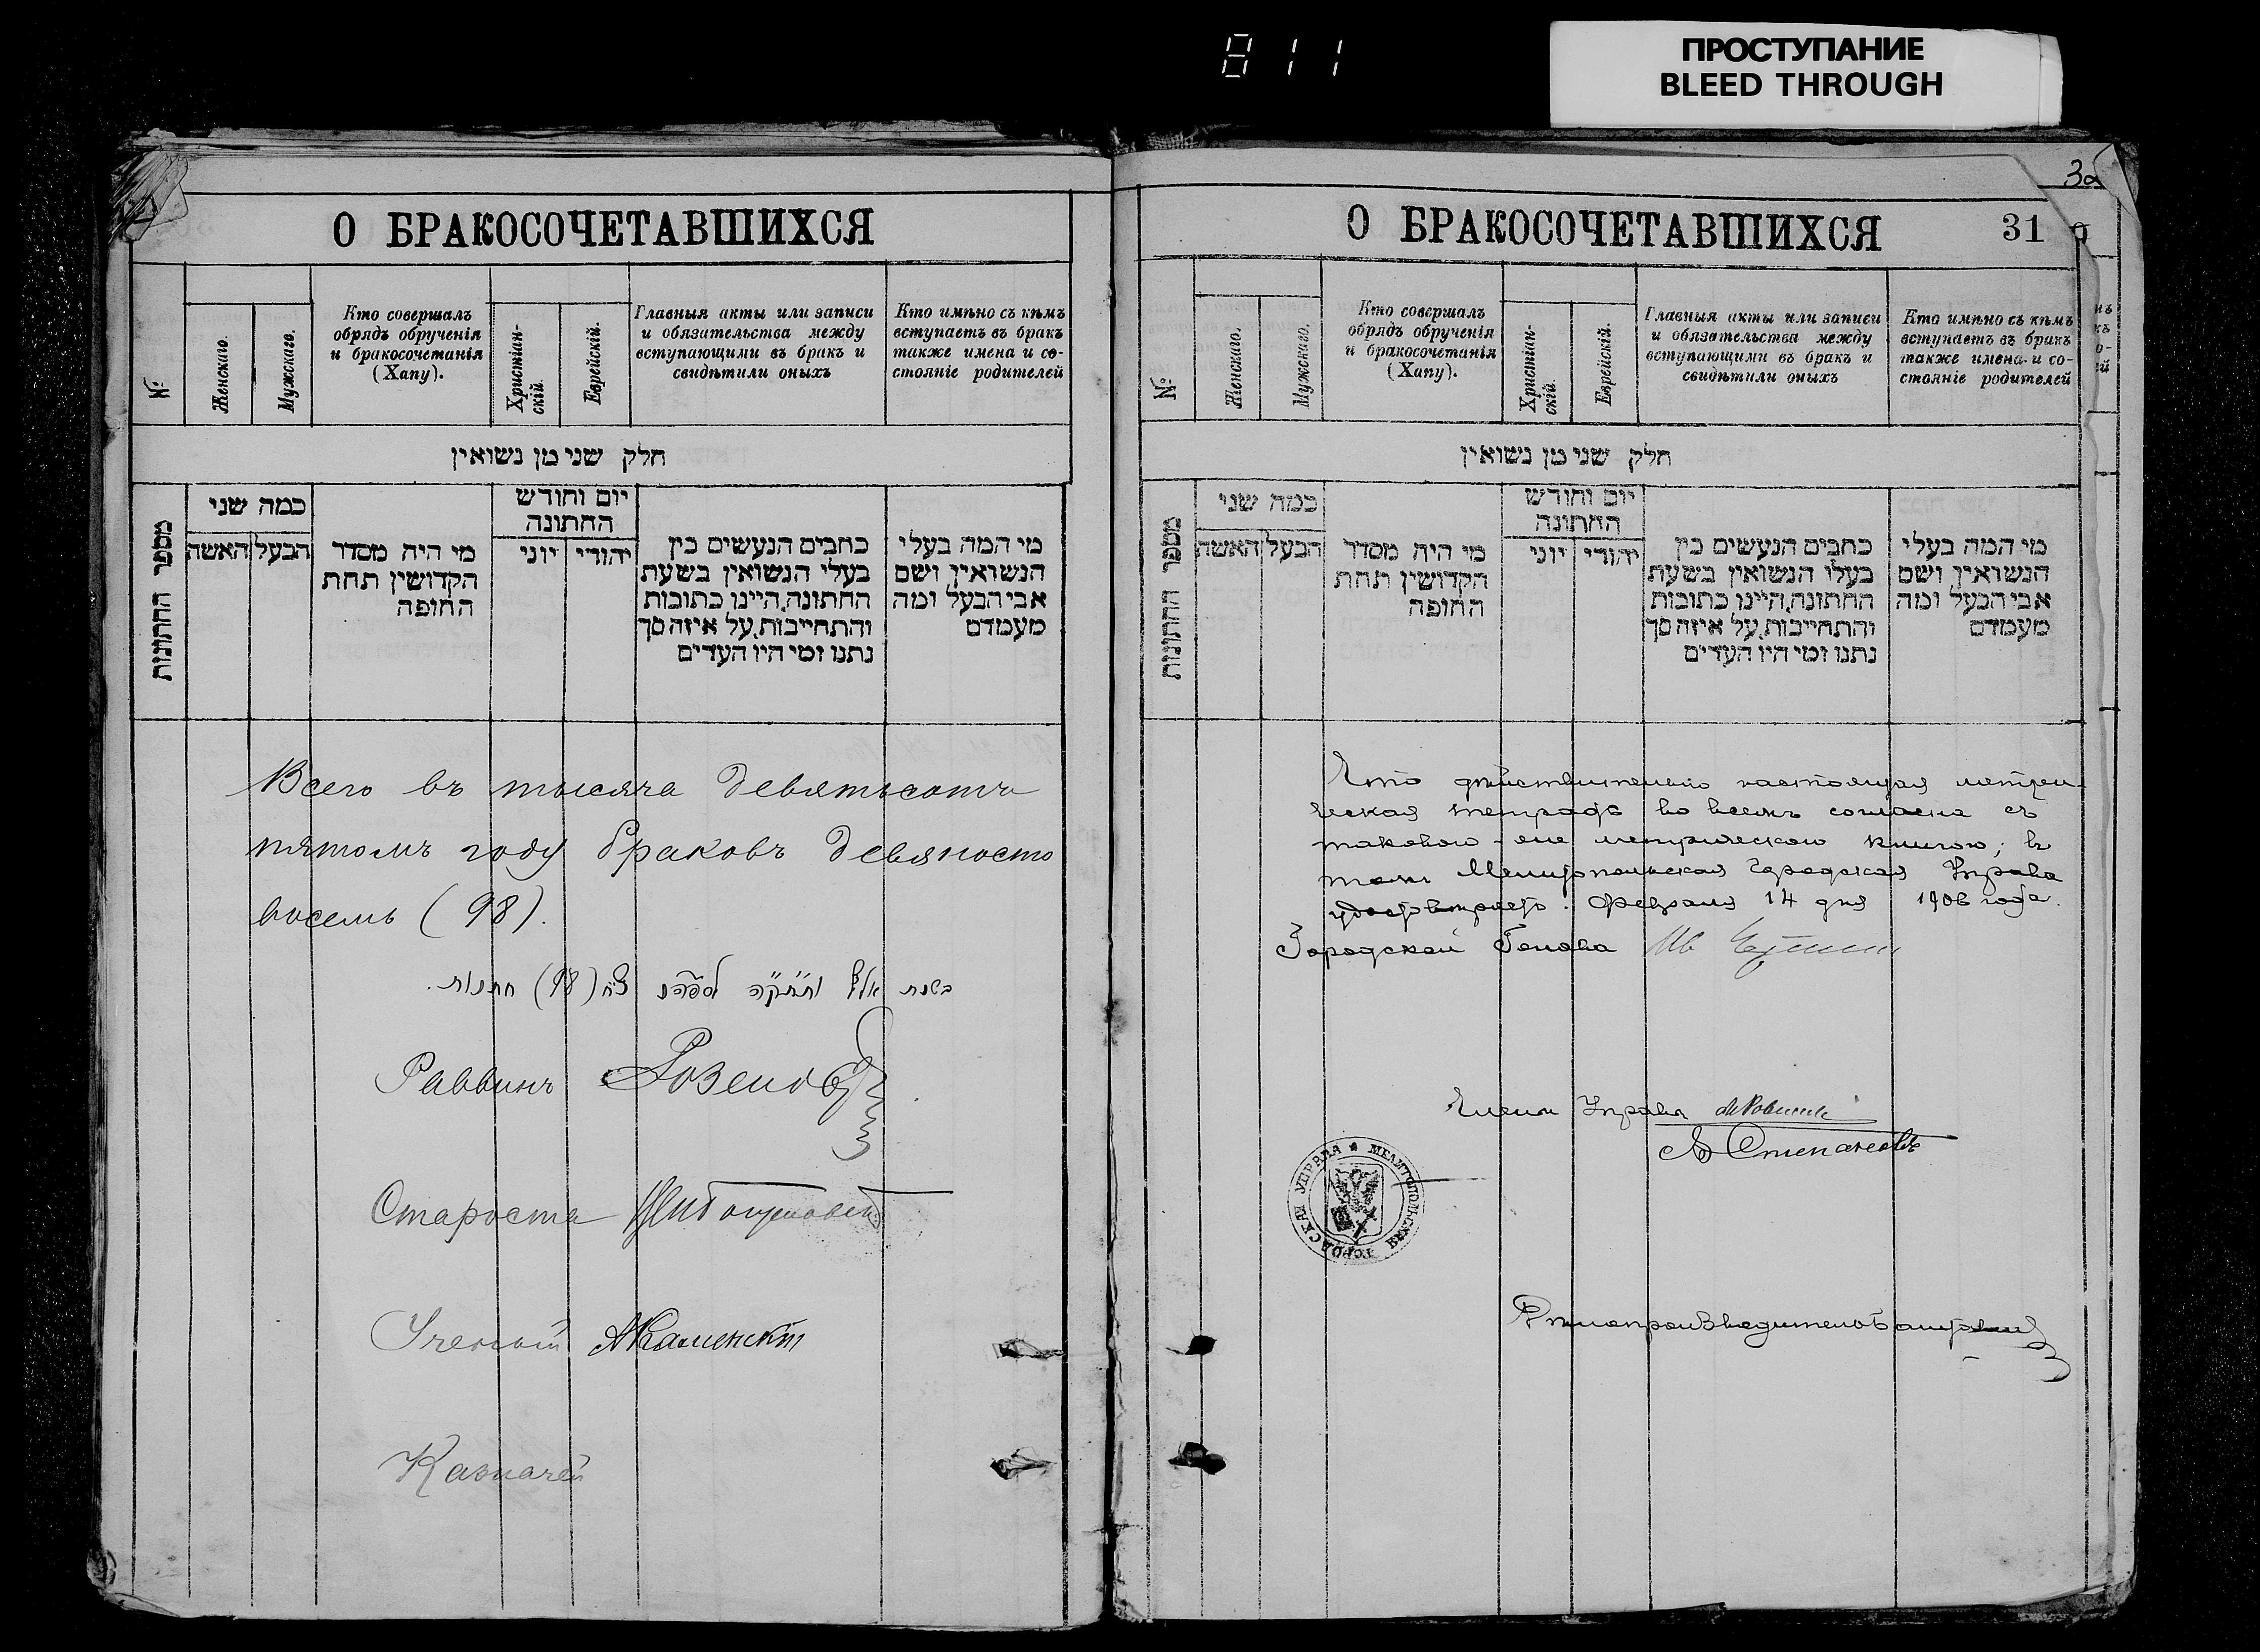 811
ПРОСТУПАНИЕ
BLEED THROUGH
О БРАКОСОЧЕТАВШИХСЯ
№
Женскаго.
Мужскаго.
Кто совершалъ
обрядъ обрученія
и бракосочетанія
(Хапу).
Христіан-
скій.
Еврейскій.
Главныя акты или записи
и обязательства между
вступающими въ бракъ и
свидѣтили оныхъ
Кто имѣно съ кѣмъ
вступаетъ въ бракъ
также имена и со-
стояніе родителей
חלק שני מן נשואין
מספר החתונות
כמה שני
האשה
הבעל
מי היה מסדר
הקדושין תחת
החופה
יום וחודש
החתונה
יוני
יהודי
כתבים הנעשים בין
בעלי הנשואין בשעת
החתונה, היינו כתובות
והתחייבות, על איזה סך
נתנו ומי היו העדים
מי המה בעלי
הנשואין ושם
אבי הבעל ומה
מעמדם
Всего въ тысяча девятьсотъ
пятомъ году браковъ девяносто
восемь (98).
בשנת אלף (98) חתונות.
Раввинъ
Староста
Ученый АКаменскій
Казначей
3а
О БРАКОСОЧЕТАВШИХСЯ
31
№
Женскаго.
Мужскаго.
Кто совершалъ
обрядъ обрученія
и бракосочетанія
(Хапу).
Христіан-
скій.
Еврейскій.
Главныя акты или записи
и обязательства между
вступающими въ бракъ и
свидѣтили оныхъ
Кто имѣно съ кѣмъ
вступаетъ въ бракъ
также имена и со-
стояніе родителей
חלק שני מן נשואין
מספר החתונות
כמה שני
האשה
הבעל
מי היה מסדר
הקדושין תחת
החופה
יום וחודש
החתונה
יוני
יהודי
כתבים הנעשים בין
בעלי הנשואין בשעת
החתונה, היינו כתובות
והתחייבות, על איזה סך
נתנו ומי היו העדים
מי המה בעלי
הנשואין ושם
אבי הבעל ומה
מעמדם
Что дѣйствительно настоящая метри-
ческая тетрадь во всемъ согласна съ
таковою-же метрическою книгою, въ
томъ Мелитопольская Городская Управа
удостовѣряетъ. Февраля 14 дня 1906 года.
Городской Голова
Члены Управы
А Степановъ
МЕЛИТОПОЛЬСКАЯ ГОРОДСКАЯ УПРАВА
Дѣлопроизводитель